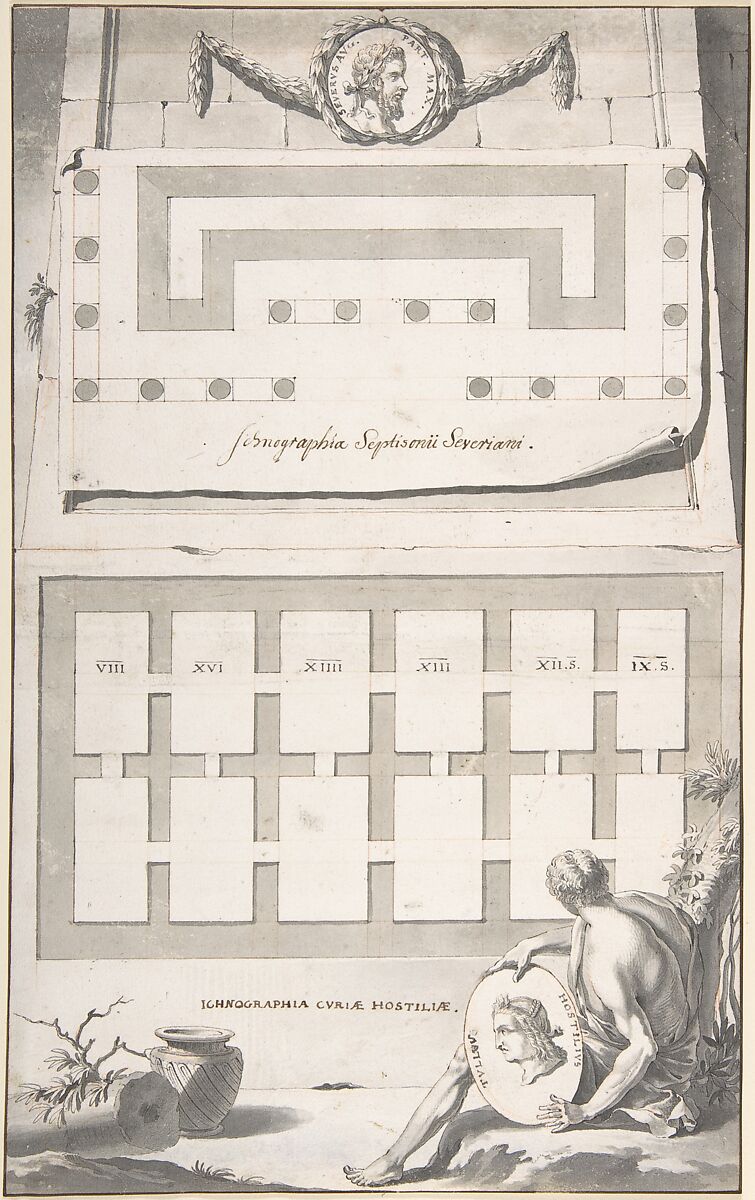 SEVERVS AVG. PART. MAX.
Ichnographia Septisonii Severiani.
VIII XVI XIIII XIII XII.S. IX.S.
ICHNOGRAPHIA CVRIÆ HOSTILIÆ.
TVLLVS HOSTILIVS